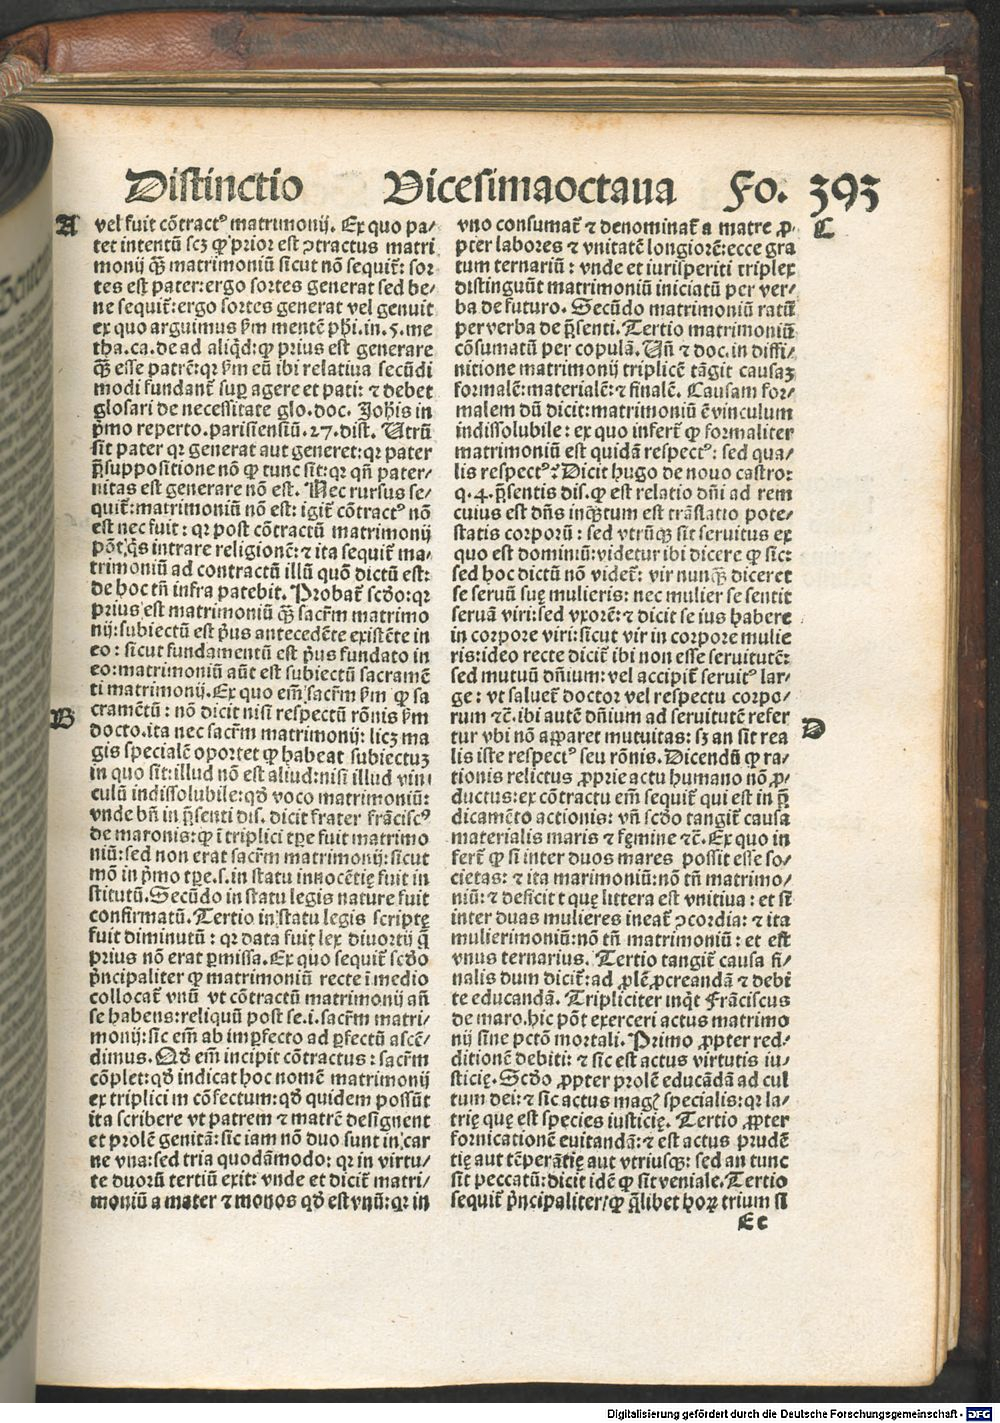 Distinctio Vicesimaoctaua Fo. 393
A
vel fuit cõtractꝰ matrimonij. Ex quo pa-
tet intentũ scz ꝙ prior est ↄtractus matri
monij qȝ̃ matrimoniũ sicut nõ sequit̃: sor
tes est pater: ergo sortes generat sed be-
ne sequit̃: ergo sortes generat vel genuit
ex quo arguimus ẜm mentẽ phi. in. 5. me
tha. ca. de ad aliqd̃: ꝙ prius est generare
qȝ̃ esse patrẽ: qꝛ ẜm eũ ibi relatiua secũdi
modi fundant̃ suꝑ agere et pati: ⁊ debet
glosari de necessitate glo. doc. Johĩs in
pᷓmo reperto. parisiensiũ. 27. dist. Utrũ
sit pater qꝛ generat aut generet: qꝛ pater
p̃suppositione nõ ꝙ tunc sit: qꝛ qñ pater-
nitas est generare nõ est. Nec rursus se-
quit̃: matrimoniũ nõ est: igit̃ cõtractꝰ nõ
est nec fuit: qꝛ post cõtractũ matrimonij
põt q̃s intrare religionẽ: ⁊ ita sequit̃ ma-
trimoniũ ad contractũ illũ quõ dictũ est:
de hoc tñ infra patebit. Probat̃ scďo: qꝛ
prius est matrimoniũ qȝ̃ sacr̃m matrimo
nij: subiectũ est pᷓus antecedẽte existẽte in
eo: sicut fundamentũ est pᷓus fundato in
eo: matrimoniũ aũt est subiectũ sacramẽ
ti matrimonij. Ex quo em̃ sacr̃m ẜm ꝙ sa
B
cramẽtũ: nõ dicit nisi respectũ rõnis ẜm
docto. ita nec sacr̃m matrimonij: licȝ ma
gis specialẽ oportet ꝙ habeat subiectuȝ
in quo sit: illud nõ est aliud: nisi illud vin
culũ indissolubile: qďo voco matrimoniũ:
vnde bñ in p̃senti dis. dicit frater frãciscꝰ
de maronis: ꝙ ĩ triplici tꝑe fuit matrimo
niũ: sed non erat sacr̃m matrimonij: sicut
mõ in pᷓmo tꝑe. s. in statu innocẽtię fuit in
stitutũ. Secũdo in statu legis nature fuit
confirmatũ. Tertio in statu legis scriptę
fuit diminutũ: qꝛ data fuit lex diuortij q̃
prius nõ erat ꝑmissa. Ex quo sequit̃ scďo
pᷓncipaliter ꝙ matrimoniũ recte ĩ medio
collocat̃ vnũ vt cõtractũ matrimonij añ
se habens: reliquũ post se. i. sacr̃m matri-
monij: sic em̃ ab imꝑfecto ad ꝑfectũ ascẽ-
dimus. Qďo em̃ incipit cõtractus: sacr̃m
cõplet: qďo indicat hoc nomẽ matrimonij
ex triplici m cõfectum: qďo quidem possũt
ita scribere vt patrem ⁊ matrẽ designent
et prolẽ genitã: sic iam nõ duo sunt in car
ne vna: sed tria quodãmodo: qꝛ in virtu-
te duorũ tertiũ exit: vnde et dicit̃ matri-
moniũ a mater ⁊ monos qďo est vnũ: qꝛ in
C
vno consumat̃ ⁊ denominat̃ a matre ꝓ-
pter labores ⁊ vnitatẽ longiorẽ: ecce gra
tum ternariũ: vnde et iurisperiti triplex
distinguũt matrimoniũ iniciatũ per ver-
ba de futuro. Secũdo matrimoniũ ratũ
per verba de p̃senti. Tertio matrimoniũ
cõsumatũ per copulã. Uñ ⁊ doc. in diffi-
nitione matrimonij triplicẽ tãgit causaȝ
formalẽ: materialẽ: ⁊ finalẽ. Causam for-
malem dũ dicit: matrimoniũ ẽ vinculum
indissolubile: ex quo infert̃ ꝙ formaliter
matrimoniũ est quidã respectꝰ: sed qua-
lis respectꝰ? Dicit hugo de nouo castro:
q. 4. p̃sentis dis. ꝙ est relatio dñi ad rem
cuius est dñs inqȝ̃tum est trãslatio pote-
statis corporũ: sed vtrũqȝ sit seruitus ex
quo est dominiũ: videtur ibi dicere ꝙ sic:
sed hoc dictũ nõ videt̃: vir nunqȝ̃ diceret
se seruũ suę mulieris: nec mulier se sentit
seruã viri: sed vxorẽ: ⁊ dicit se ius habere
in corpore viri: sicut vir in corpore mulie
ris: ideo recte dicit̃ ibi non esse seruitutẽ:
sed mutuũ dñium: vel accipit̃ seruitꝰ lar-
ge: vt saluet̃ doctor: vel respectu corpo-
D
rum ⁊c̃. ibi autẽ dñium ad seruitutẽ refer
tur vbi nõ apparet mutuitas: sȝ an sit rea
lis iste respectꝰ seu rõnis. Dicendũ ꝙ ra-
tionis relictus ꝓprie actu humano nõ ꝓ-
ductus: ex cõtractu em̃ sequit̃ qui est in p̃
dicamẽto actionis: vñ scďo tangit̃ causa
materialis maris ⁊ fęmine ⁊c̃. Ex quo in
fert̃ ꝙ si inter duos mares possit esse so-
cietas: ⁊ ita marimoniũ: nõ tñ matrimo-
niũ: ⁊ deficit t quę littera est vnitiua: et si
inter duas mulieres ineat̃ ↄcordia: ⁊ ita
mulierimoniũ: nõ tñ matrimoniũ: et est
vnus ternarius. Tertio tangit̃ causa fi-
nalis dum dicit̃: ad ꝓlẽ ꝓcreandã ⁊ debi
te educandã. Tripliciter inqt̃ Frãciscus
de maro. hic põt exerceri actus matrimo
nij sine pctõ mortali. Primo ꝓpter red-
ditionẽ debiti: ⁊ sic est actus virtutis iu-
sticię. Scďo ꝓpter prolẽ educãdã ad cul
tum dei: ⁊ sic actus magꝭ specialis: qꝛ la-
trię quę est species iusticię. Tertio ꝓpter
fornicationẽ euitandã: ⁊ est actus prudẽ
tię aut tẽperãtię aut vtriusqȝ: sed an tunc
sit peccatũ: dicit idẽ ꝙ sit veniale. Tertio
sequit̃ pᷓncipaliter/ ꝙ q̃libet hoꝝ trium si
Et
Digitalisierung gefördert durch die Deutsche Forschungsgemeinschaft - DFG